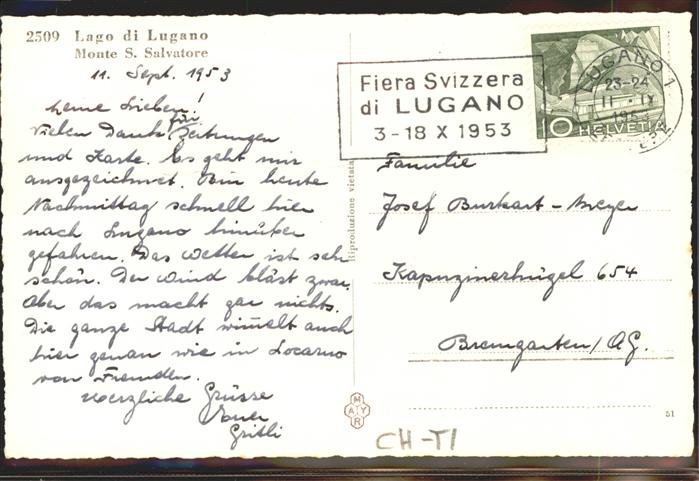 2509 Lago di Lugano
Monte S. Salvatore
11. Sept. 1953
Meine Lieben!
Vielen Dank für Zeitungen
und Karte. Es geht mir
ausgezeichnet. Bin heute
Nachmittag schnell hier
nach Lugano hinüber
gefahren. Das Wetter ist sehr
schön. Der Wind bläst zwar,
Aber das macht gar nichts.
Die ganze Stadt wimmelt auch
hier genau wie in Locarno
von Fremden.
Herzliche Grüsse
Euer
Gritli
Riproduzione vietata
Fiera Svizzera
di LUGANO
3-18 X 1953
10 HELVETIA
LUGANO 1
23-24
11 IX
1953
Familie
Josef Burkart-Meyer
Kapuzinerhügel 654
Bremgarten/AG.
MAYR
51
CH-TI